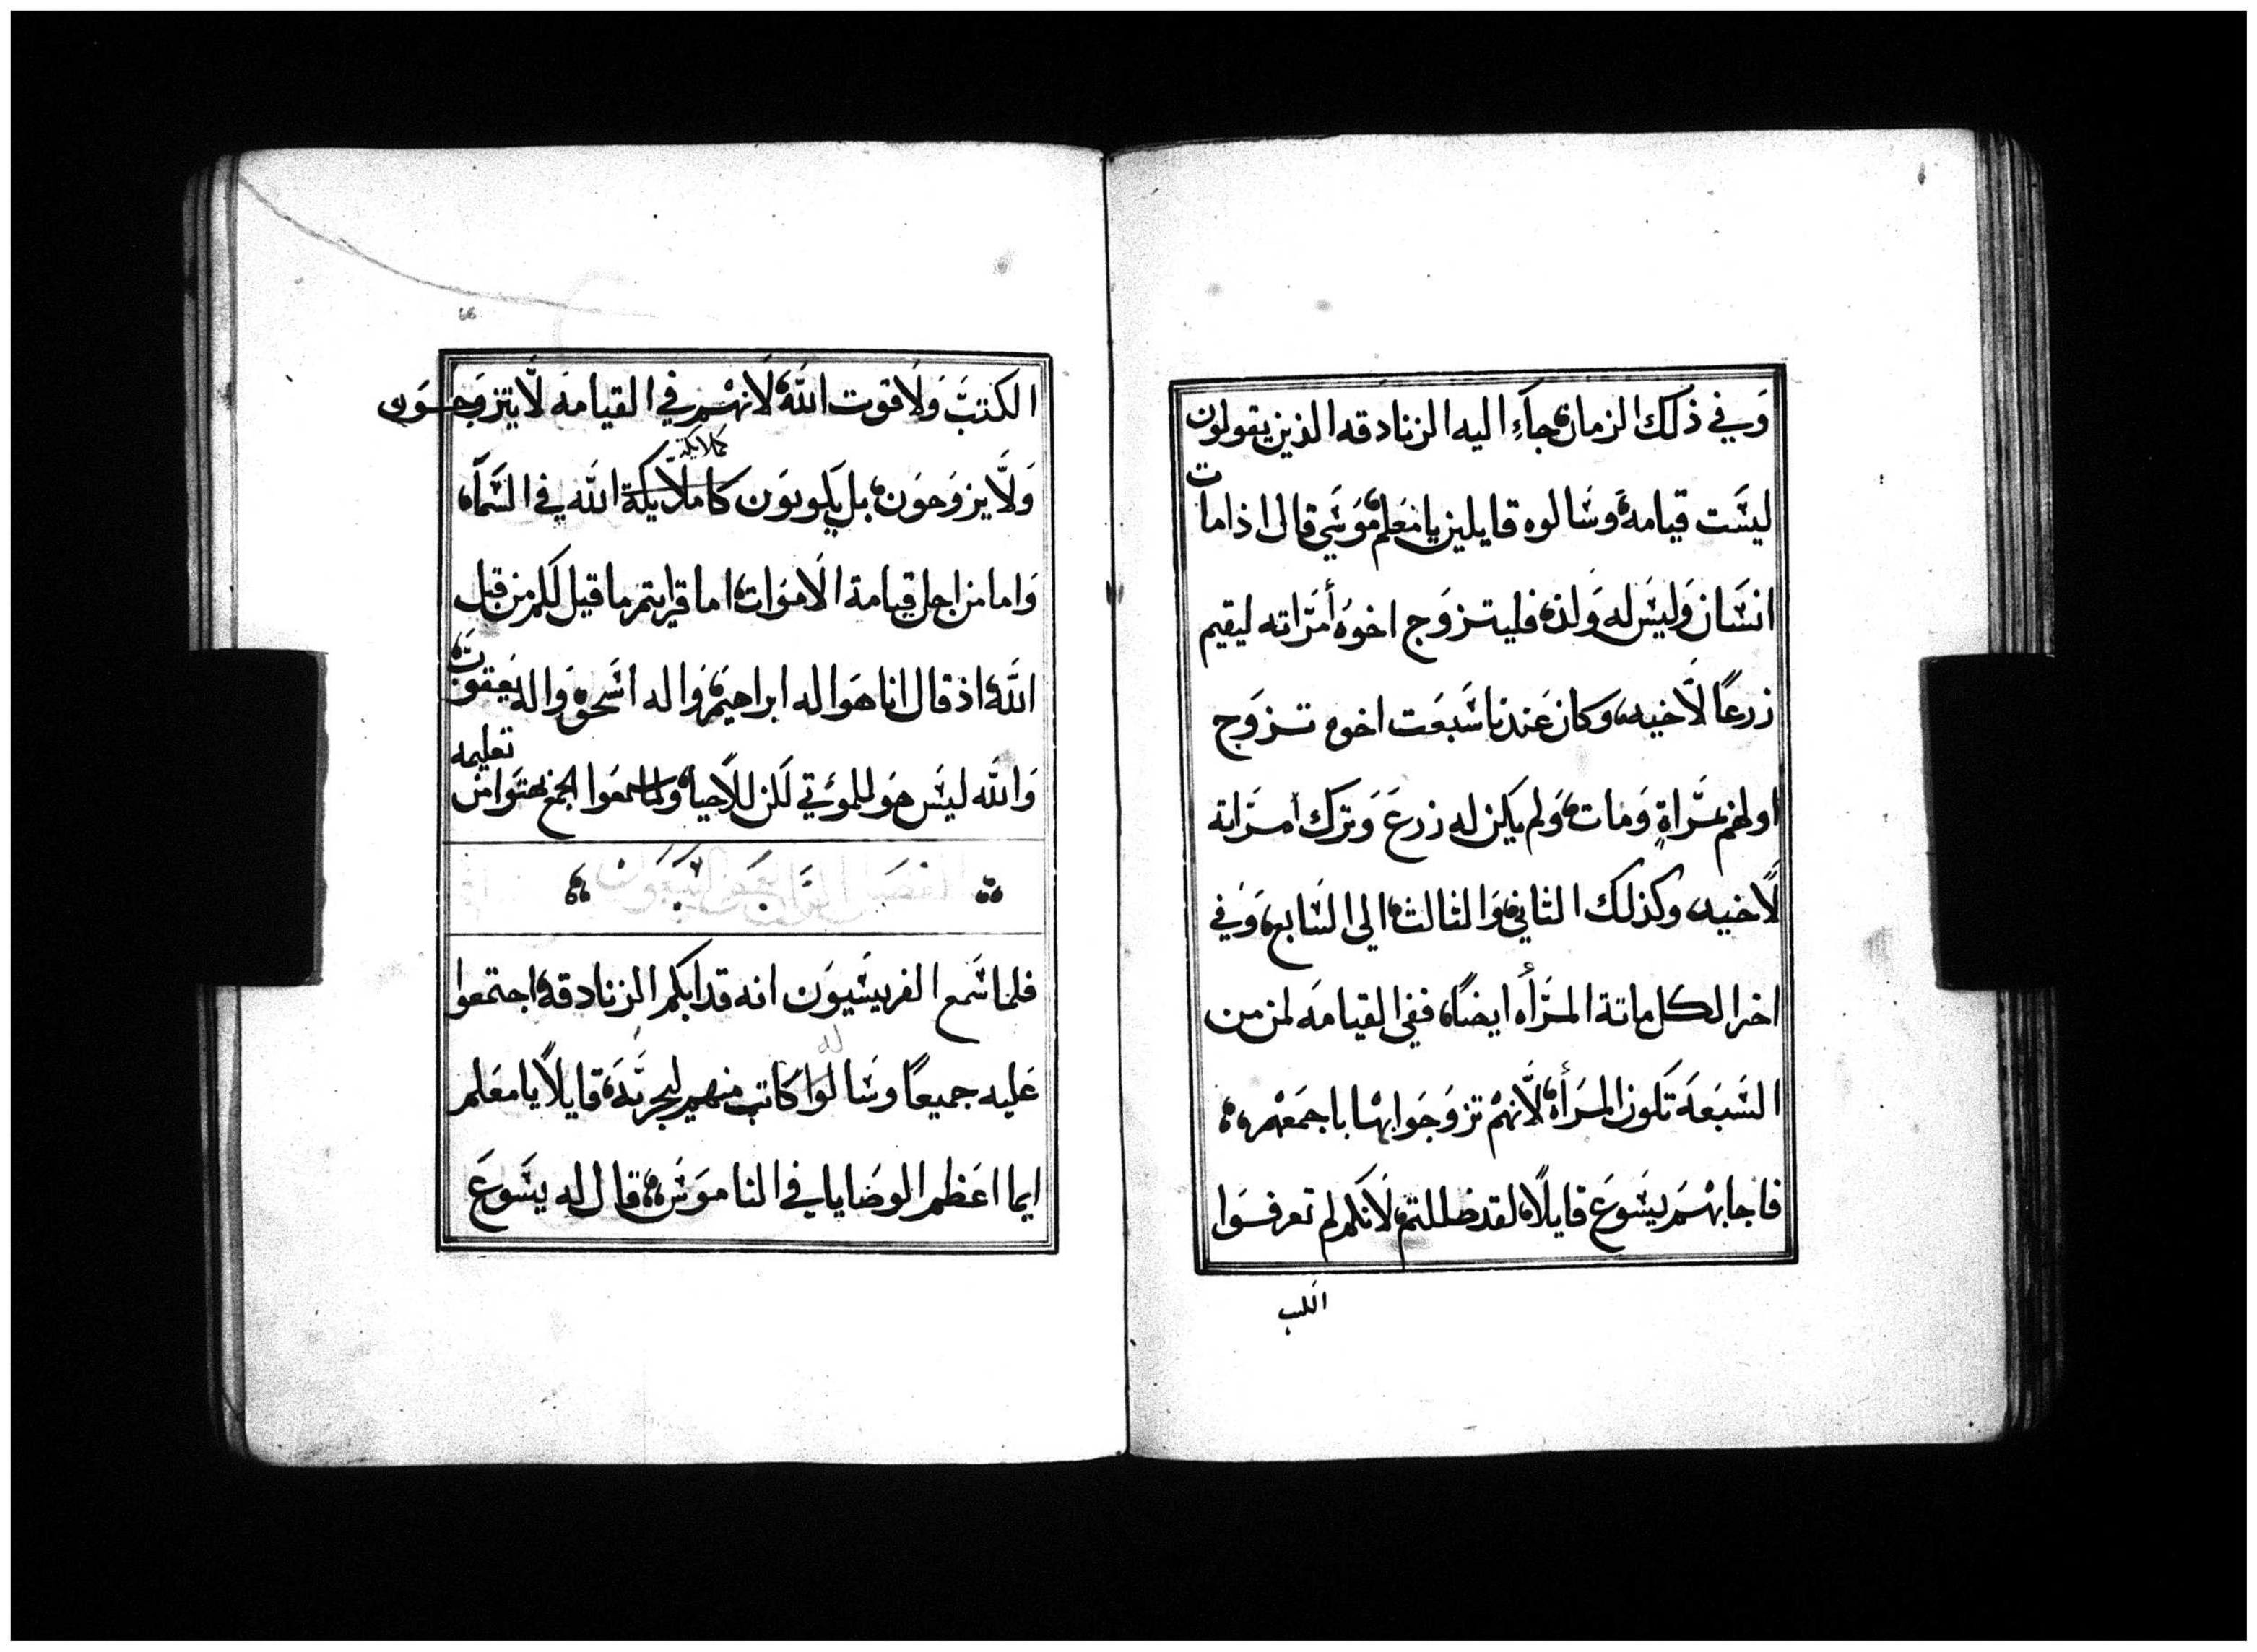 وَفي ذلك الزمان جآء اليه الزنادقه الذين يقولون
ليسَت قيامه وسَالوه قايلين يا معَلم موَسَي قال اذا مات
انسَان وَليسَ له وَلد، فليتزوَج اخوُه أمَرَاته ليقيم
زرعًا لاَخيه، وكان عَندنا سَبعَت اخوه تزوَج
اولهم بمَرَاةٍ وَمات، وَلم يكن له زرعَ وَترك أمرَاته
لاَخيه، وكذلك الثاني، وَالثالث، الي السَابع، وَفي
اخر الكل ماتة المَرَأه ايضًا، ففي القيامَه لمن من
السَبعَه تَكون المرَأه، لاَنهمْ تزوَجَوا بهَا باجمعَهْم،
فاجابهْم يسَوعَ قايلاً، لقد ضللتم، لاَنكم لم تعرفوَا
الكتب
الكتبَ وَلاَ قوت الله لاَنهْم في القيامَه لاَ يتزوَجوَن
وَلاَ يزوَجوَن، بل يَكوبوَن كاملاَيكة الله في السَمآء
كملايكة
وَاما من اجل قيامة الاَموَات، اما قرايتم ما قيل لكم من قبل
الله، اذ قال انا هوَ اله ابراهيم، وَاله اسَحق وَاله يعَقوب،
وَالله ليسَ هوَ للموتي لَكن للاَحيا، ولما سمعَوا الجمَع بهتوَا من تعليمه
فلما سَمع الفريسَيوَن انه قد ابكم الزنادقه، اجتمعوا
عَليه جميعًا وسَالوا كاتب منهم ليجربَه، قايلاً يا معَلم
له
ايما اعَظم الوصَايا في الناموَس، قال له يسَوعَ
66